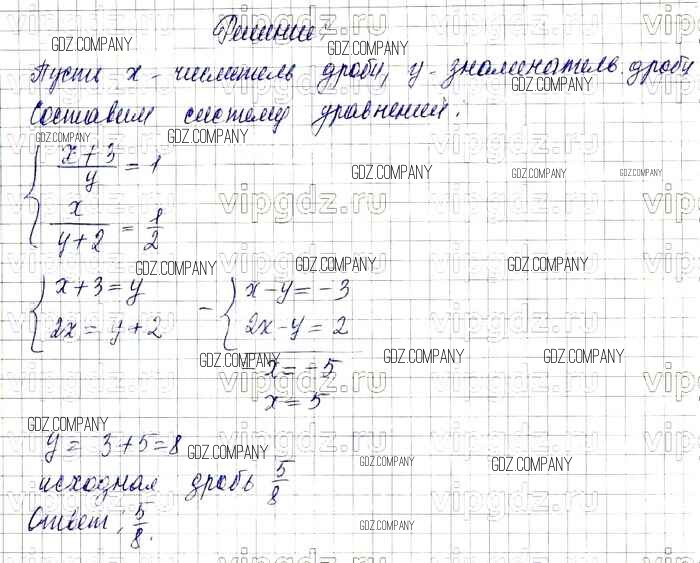 Решение:
Пусть x - числитель дроби, y - знаменатель дроби
Составим систему уравнений:
{ (x+3)/y = 1
x/(y+2) = 1/2
{ x+3=y
2x = y+2
- { x-y=-3
2x-y=2
-x=-5
x=5
y = 3+5=8
исходная дробь 5/8
Ответ: 5/8.
GDZ.COMPANY
vipgdz.ru